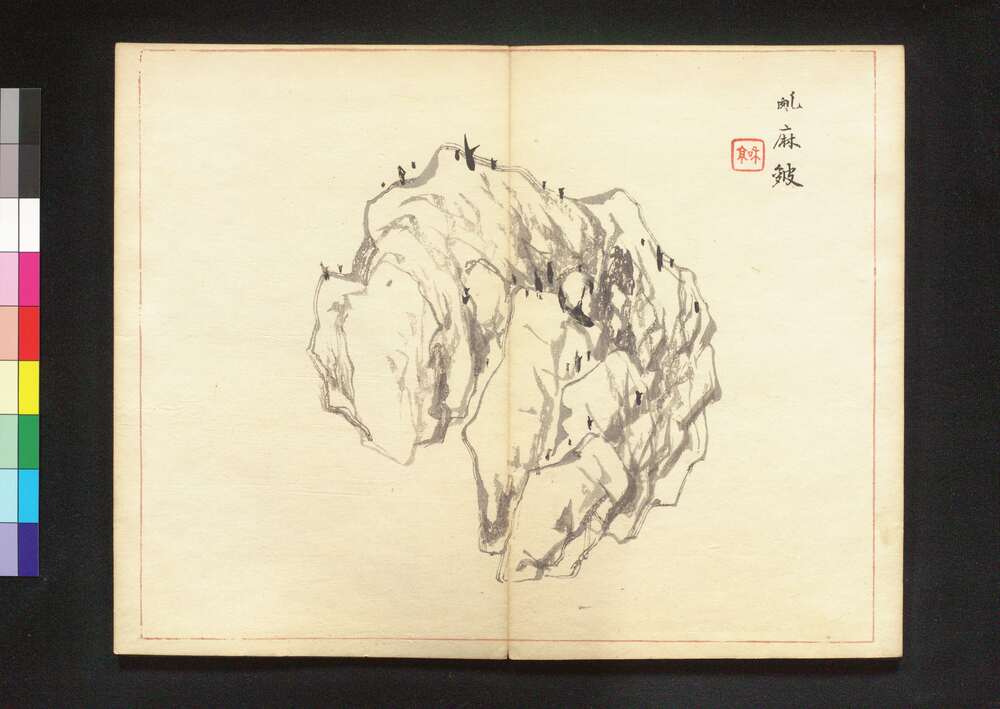 亂麻皴